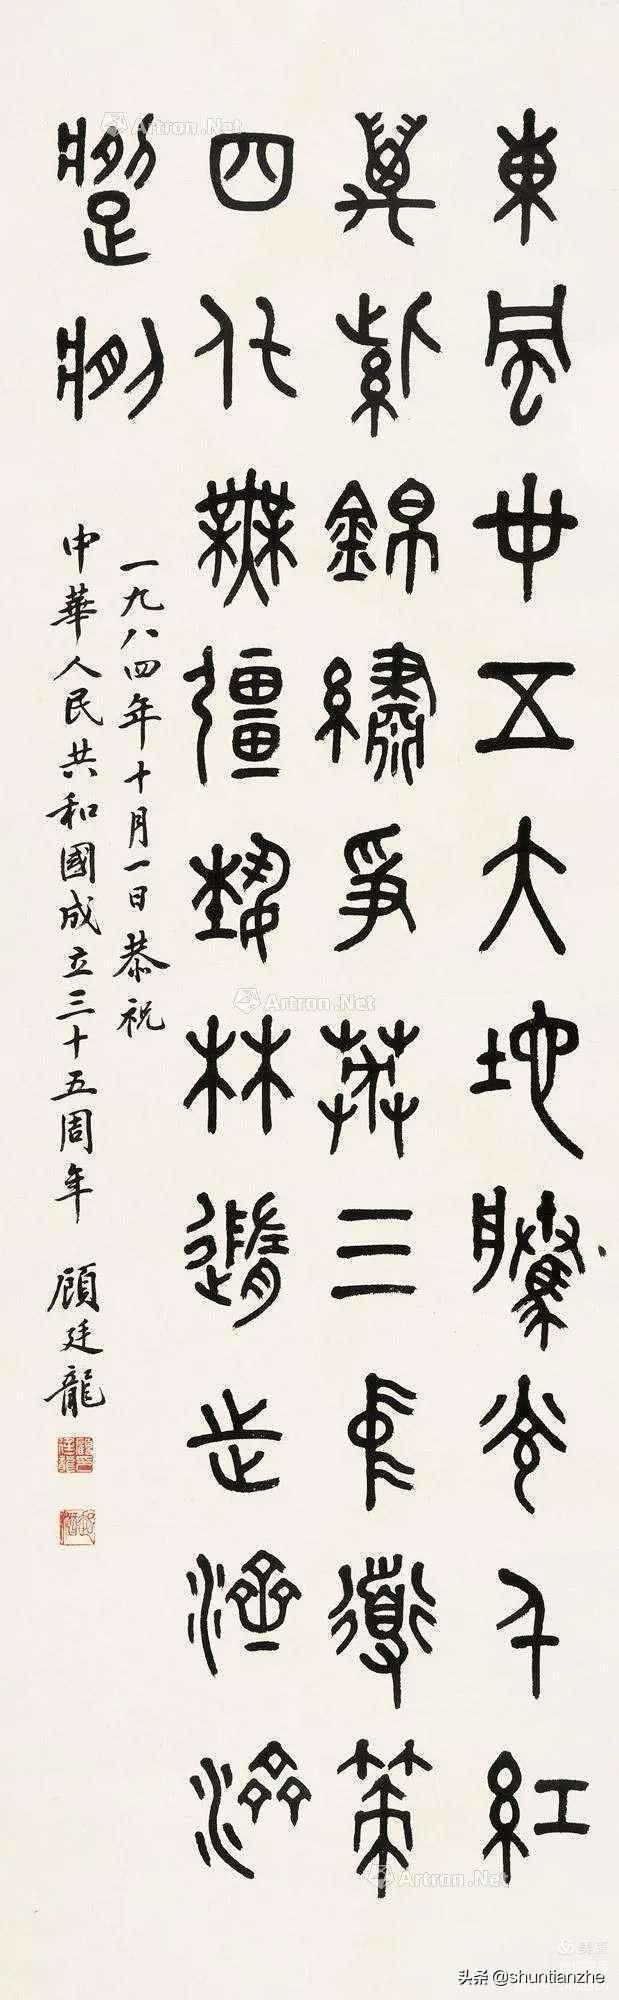 東風卅五大地騰千紅
萬紫錦繡爭三中導策
四化無疆藝林止濟濟
蹌蹌
一九八四年十月一日恭祝
中華人民共和國成立三十五周年 顧廷龍
Artron.Net
Artron.Net
Artron.Net
头条@shuntianzhe